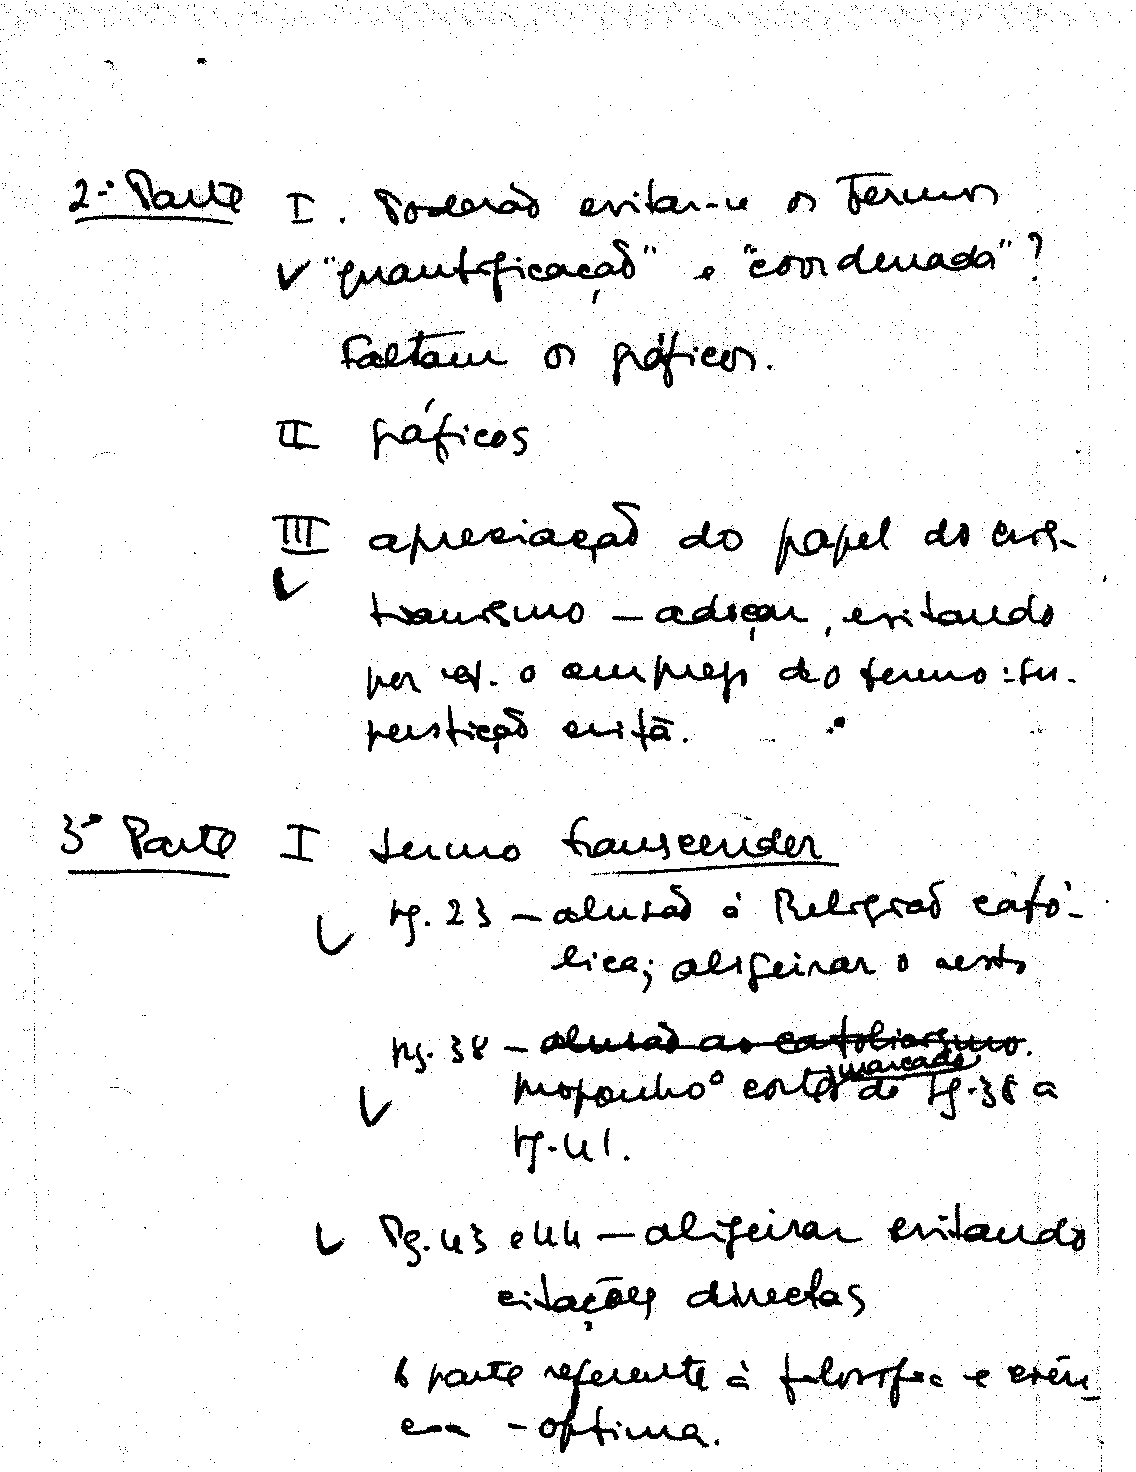 2.ª Parte I. Poderão evitar-se os termos
"quantificação" e "coordenada"?
Faltam os gráficos.
II gráficos
III apreciação do papel do cris-
tianismo – adoçar, evitando
por ex. o emprego do termo: su-
perstição cristã.
3ª Parte I termo transcender
pg. 23 – alusão à Religião cató-
lica; aligeirar o texto
pg. 38 – alusão ao catolicismo.
marcado
proponho o corte de pg. 38 a
pg. 41.
Pg. 43 e 44 – aligeirar evitando
citações directas
parte referente à filosofia e ciên-
cia – optima.